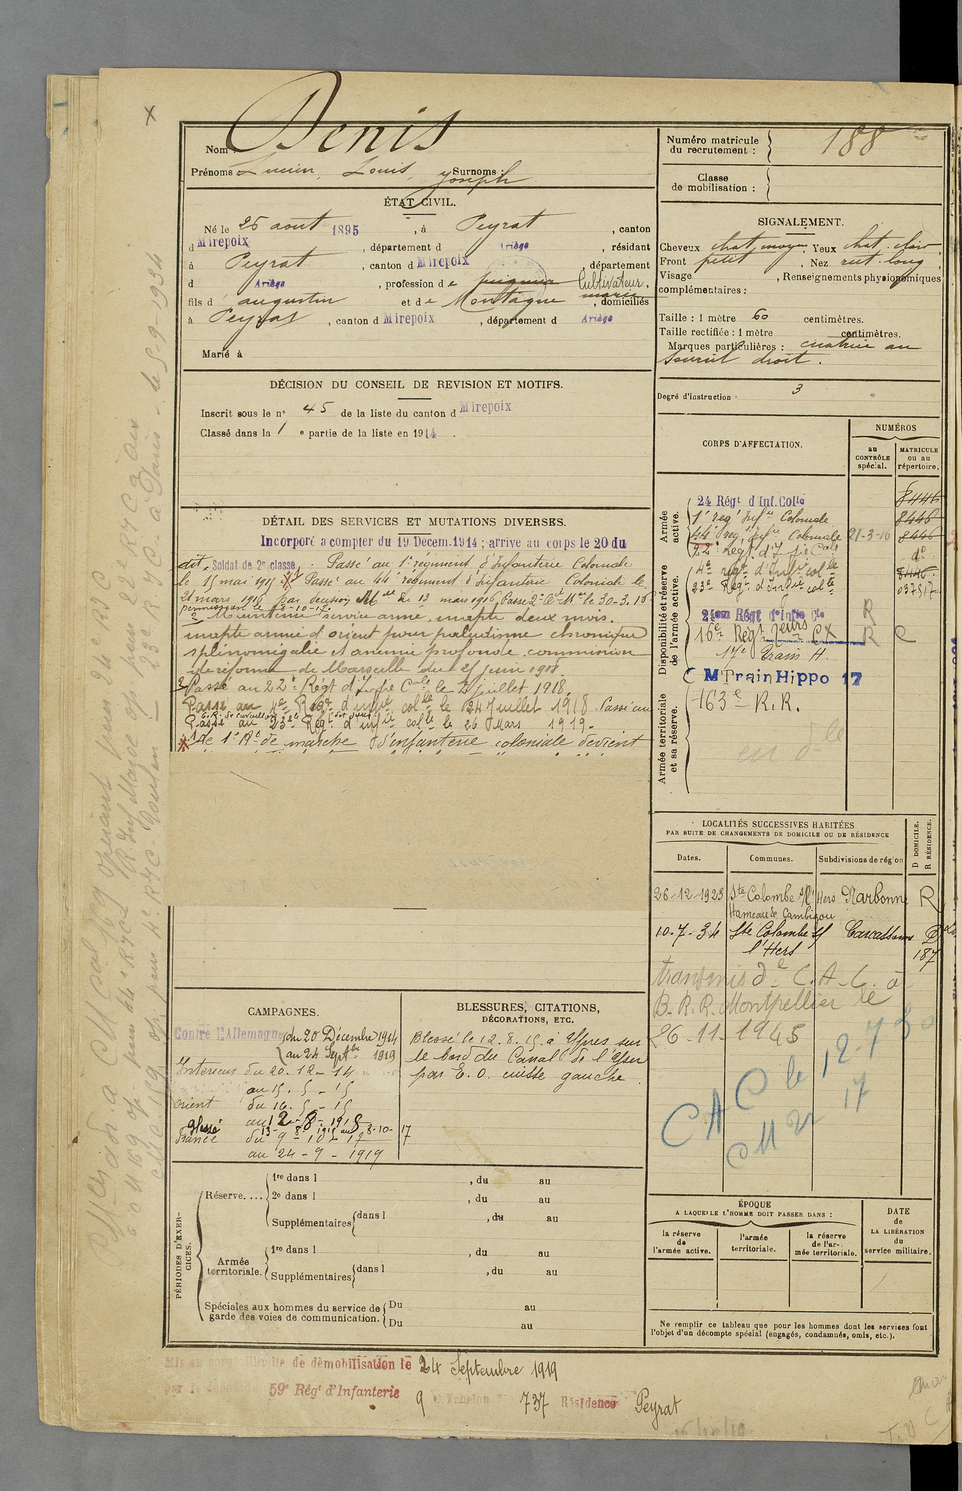 Nom : Denis
Prénoms Lucien, Louis, Joseph Surnoms :
ÉTAT CIVIL.
Né le 26 août 1895, à Peyrat, canton
d Mirepoix, département d Ariège, résidant
à Peyrat, canton d Mirepoix, département
d Ariège, profession de Cultivateur,
fils d'augustin et de Montagne maria, domiciliés
à Peyrat, canton d Mirepoix, département d Ariège
Marié à
DÉCISION DU CONSEIL DE REVISION ET MOTIFS.
Inscrit sous le n° 45 de la liste du canton d Mirepoix
Classé dans la 1e partie de la liste en 1914.
DÉTAIL DES SERVICES ET MUTATIONS DIVERSES.
Incorporé a compter du 19 Décem. 1914 ; arrive au corps le 20 du
dit, Soldat de 2e classe. Passé au 1er régiment d'Infanterie Coloniale
le 15 mai 1915. Passé au 44e régiment d'Infanterie Coloniale le
21 mars 1916 par décision Mlle du 13 mars 1916. Passé 2e Cie Mre le 30-3.16
Maintenu service armé, inapte deux mois.
inapte armée d'orient pour paludisme chronique
splénomégalie et anémie profonde, commission
de réforme de Marseille du 25 juin 1918.
Passé au 22e Régt d'Infie Cale le 2 juillet 1918.
Passé au 4e Régt d'infie colle le 24 Juillet 1918. Passé au
Passé au 23e Régt d'infie colle le 26 Mars 1919.
le 1er Rt de marche d'infanterie coloniale devient
CAMPAGNES.
Contre l'Allemagne du 20 Décembre 1914
au 24 Septbre 1919
Intérieur du 20-12-14
au 15-5-15
Orient du 16-5-15
au 12-8-1915
Blessé
France du 9-10-17
au 24-9-1919
BLESSURES, CITATIONS,
DÉCORATIONS, ETC.
Blessé le 12.8.15 à Ypres sur
le bord du Canal de l'Yser
par E.O. cuisse gauche.
PÉRIODES D'EXERCICES.
Réserve....
1re dans l , du au
2e dans l , du au
Supplémentaires dans l , du au
Armée territoriale.
1re dans l , du au
Supplémentaires dans l , du au
Spéciales aux hommes du service de garde des voies de communication.
Du au
Du au
Numéro matricule du recrutement : 188
Classe de mobilisation :
SIGNALEMENT.
Cheveux chat. moyen, Yeux chat. clair,
Front petit, Nez rect. long,
Visage , Renseignements physionomiques
complémentaires :
Taille : 1 mètre 60 centimètres.
Taille rectifiée : 1 mètre centimètres.
Marques particulières : cicatrice au
sourcil droit.
Degré d'instruction : 3
CORPS D'AFFECTATION.
NUMÉROS
au CONTRÔLE spécial.
MATRICULE ou au répertoire.
Armée active.
Disponibilité et réserve de l'armée active.
Armée territoriale et sa réserve.
24 Régt d'Inf. Colle 8446
1er regt infie Coloniale 8446
44e regt infie Coloniale 21-3-16 8446
22e Régt d'Infie Cale do
4e régt d'infie colle 8446
23e Régt d'infie colle
21em Régt d'Infie Cle R
16e Régt R C
17e Train H.
C M Train Hippo 17
163e R.R.
LOCALITÉS SUCCESSIVES HABITÉES
PAR SUITE DE CHANGEMENTS DE DOMICILE OU DE RÉSIDENCE
Dates. Communes. Subdivisions de région
D DOMICILE.
R RÉSIDENCE.
26-12-1923 Ste Colombe s/l'Hers Narbonne R
Hameau de Cambigou
10-7-34 Ste Colombe s/ Carcassonne D
l'Hers 187
transmis d C.A.C. à
B.R.R. Montpellier le
26-11-1945
CAC le 12-7-30
CM 17
ÉPOQUE
A LAQUELLE L'HOMME DOIT PASSER DANS :
la réserve de l'armée active.
l'armée territoriale.
la réserve de l'armée territoriale.
DATE
de
LA LIBÉRATION
du
service militaire.
Ne remplir ce tableau que pour les hommes dont les services font
l'objet d'un décompte spécial (engagés, condamnés, omis, etc.).
Mis en congé illimité de démobilisation le 24 Septembre 1919
par le 59e Régt d'Infanterie
9e Echelon N° 737 Résidence Peyrat